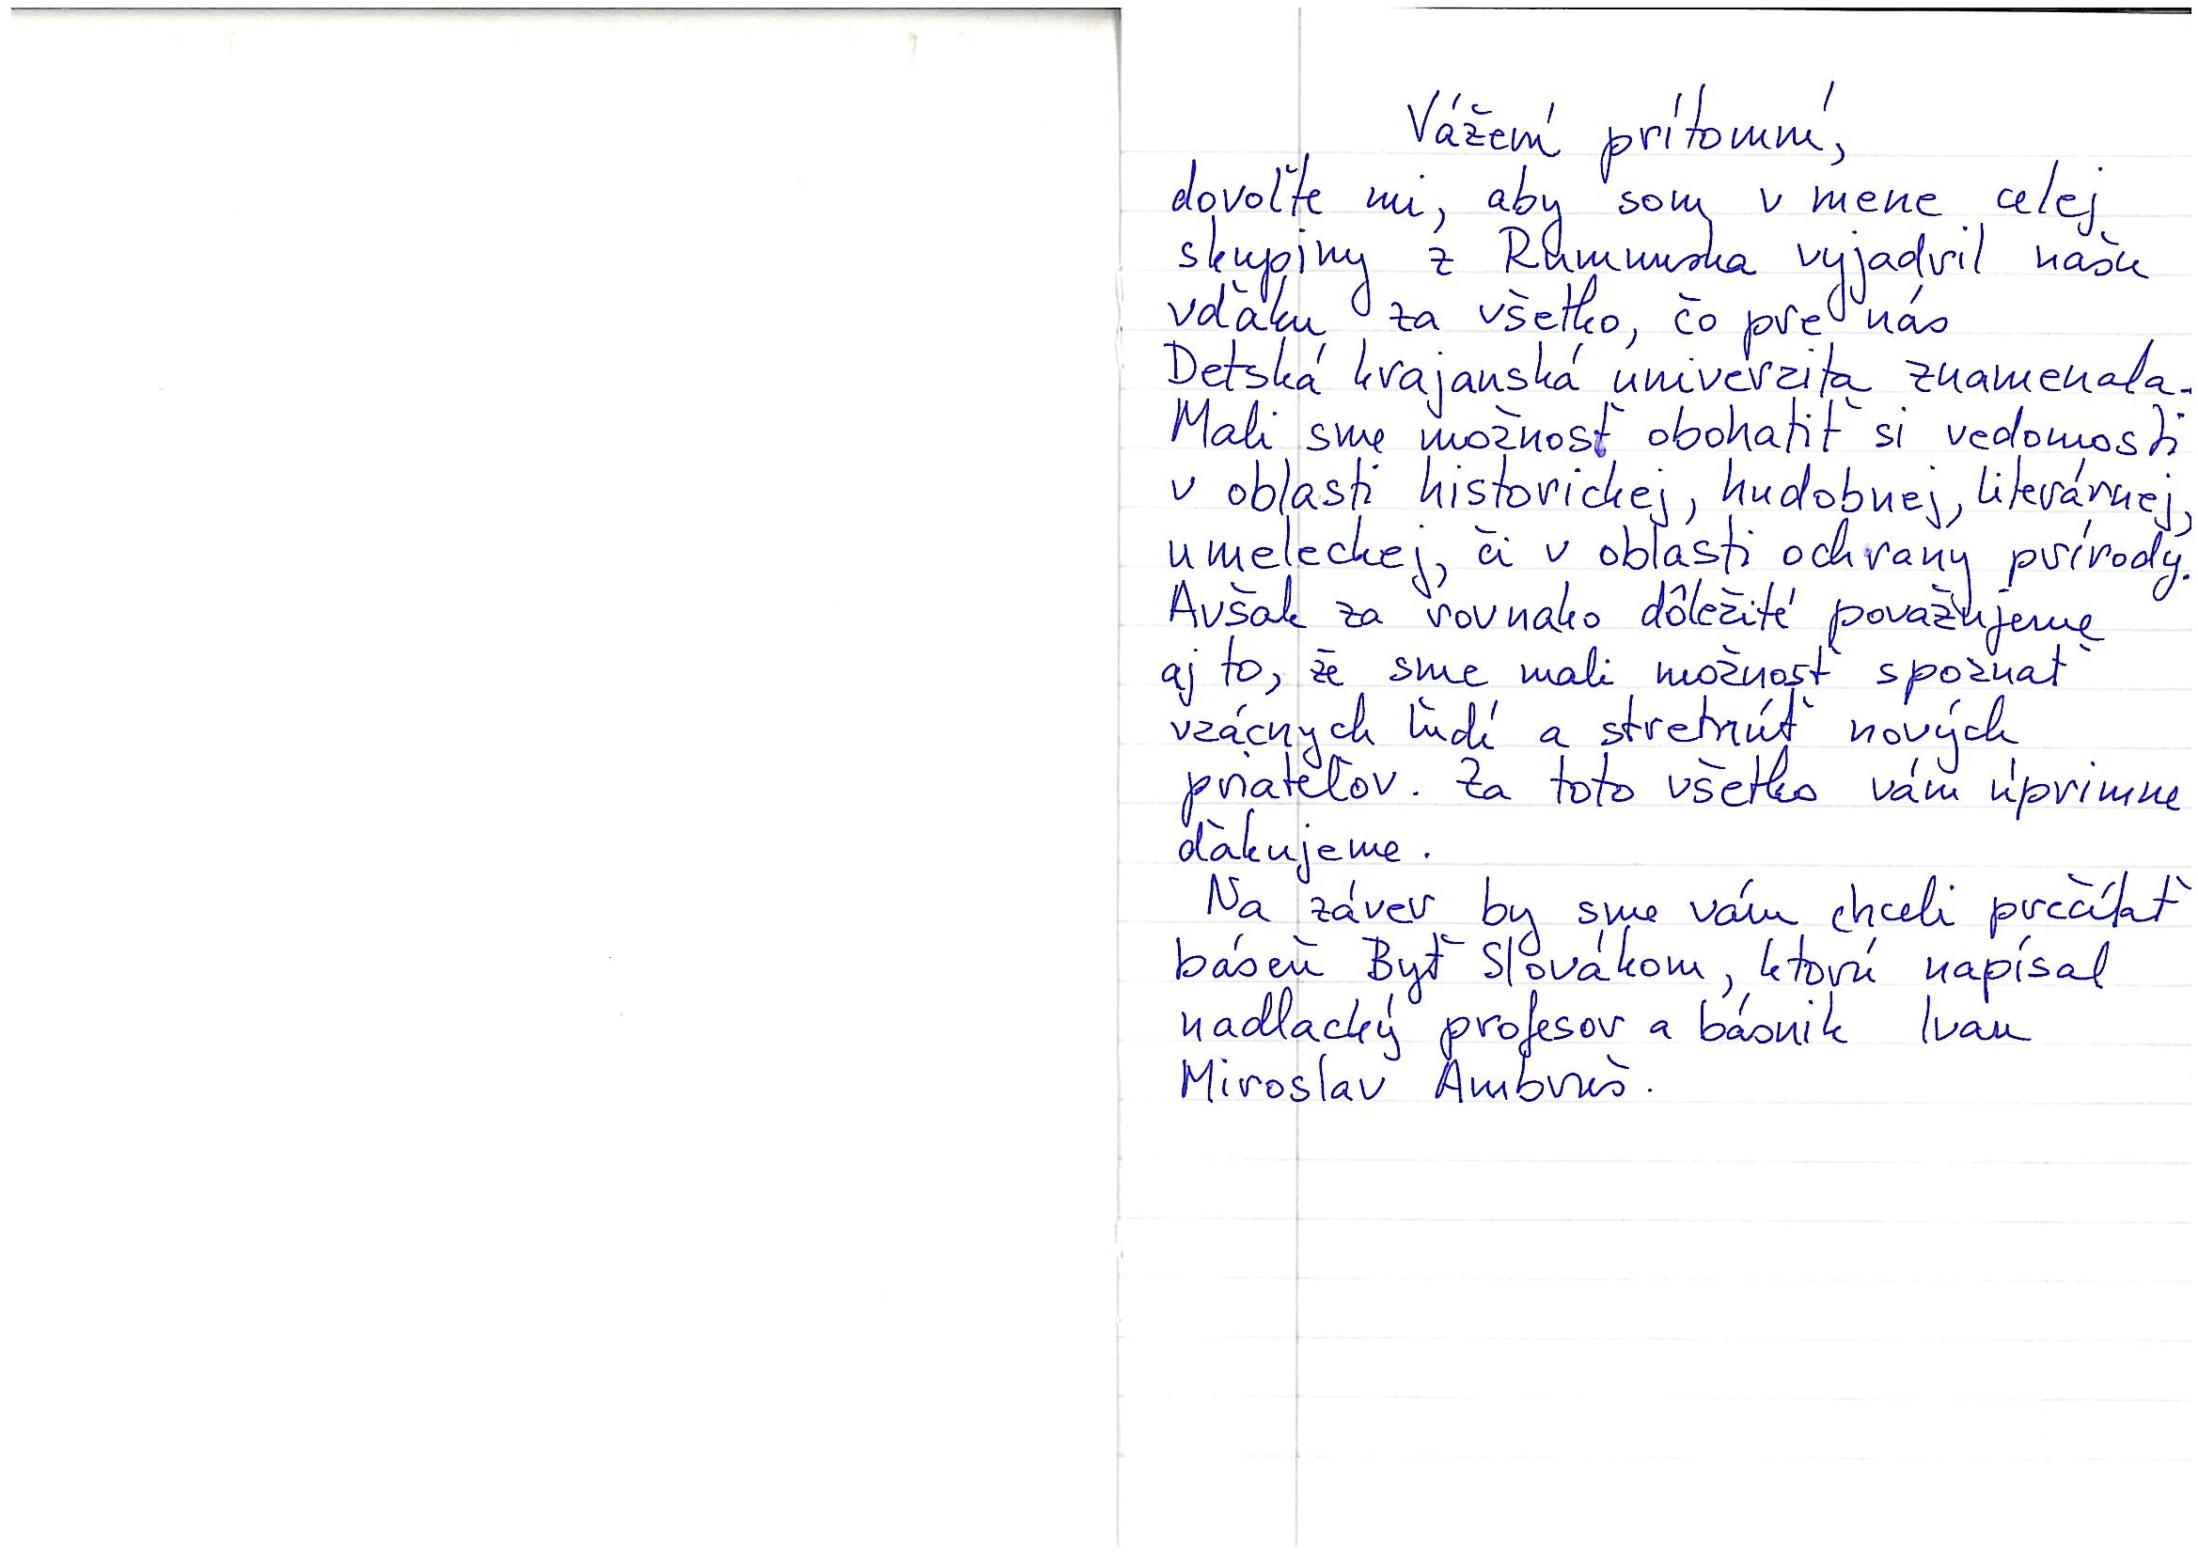 Vážení prítomní,
dovoľte mi, aby som v mene celej
skupiny z Rumunska vyjadril našu
vďaku za všetko, čo pre nás
Detská krajanská univerzita znamenala.
Mali sme možnosť obohatiť si vedomosti
v oblasti historickej, hudobnej, literárnej,
umeleckej, či v oblasti ochrany prírody.
Avšak za rovnako dôležité považujeme
aj to, že sme mali možnosť spoznať
vzácnych ľudí a stretnúť nových
priateľov. Za toto všetko vám úprimne
ďakujeme.
Na záver by sme vám chceli prečítať
báseň Byť Slovákom, ktorú napísal
nadlacký profesor a básnik Ivan
Miroslav Ambruš.